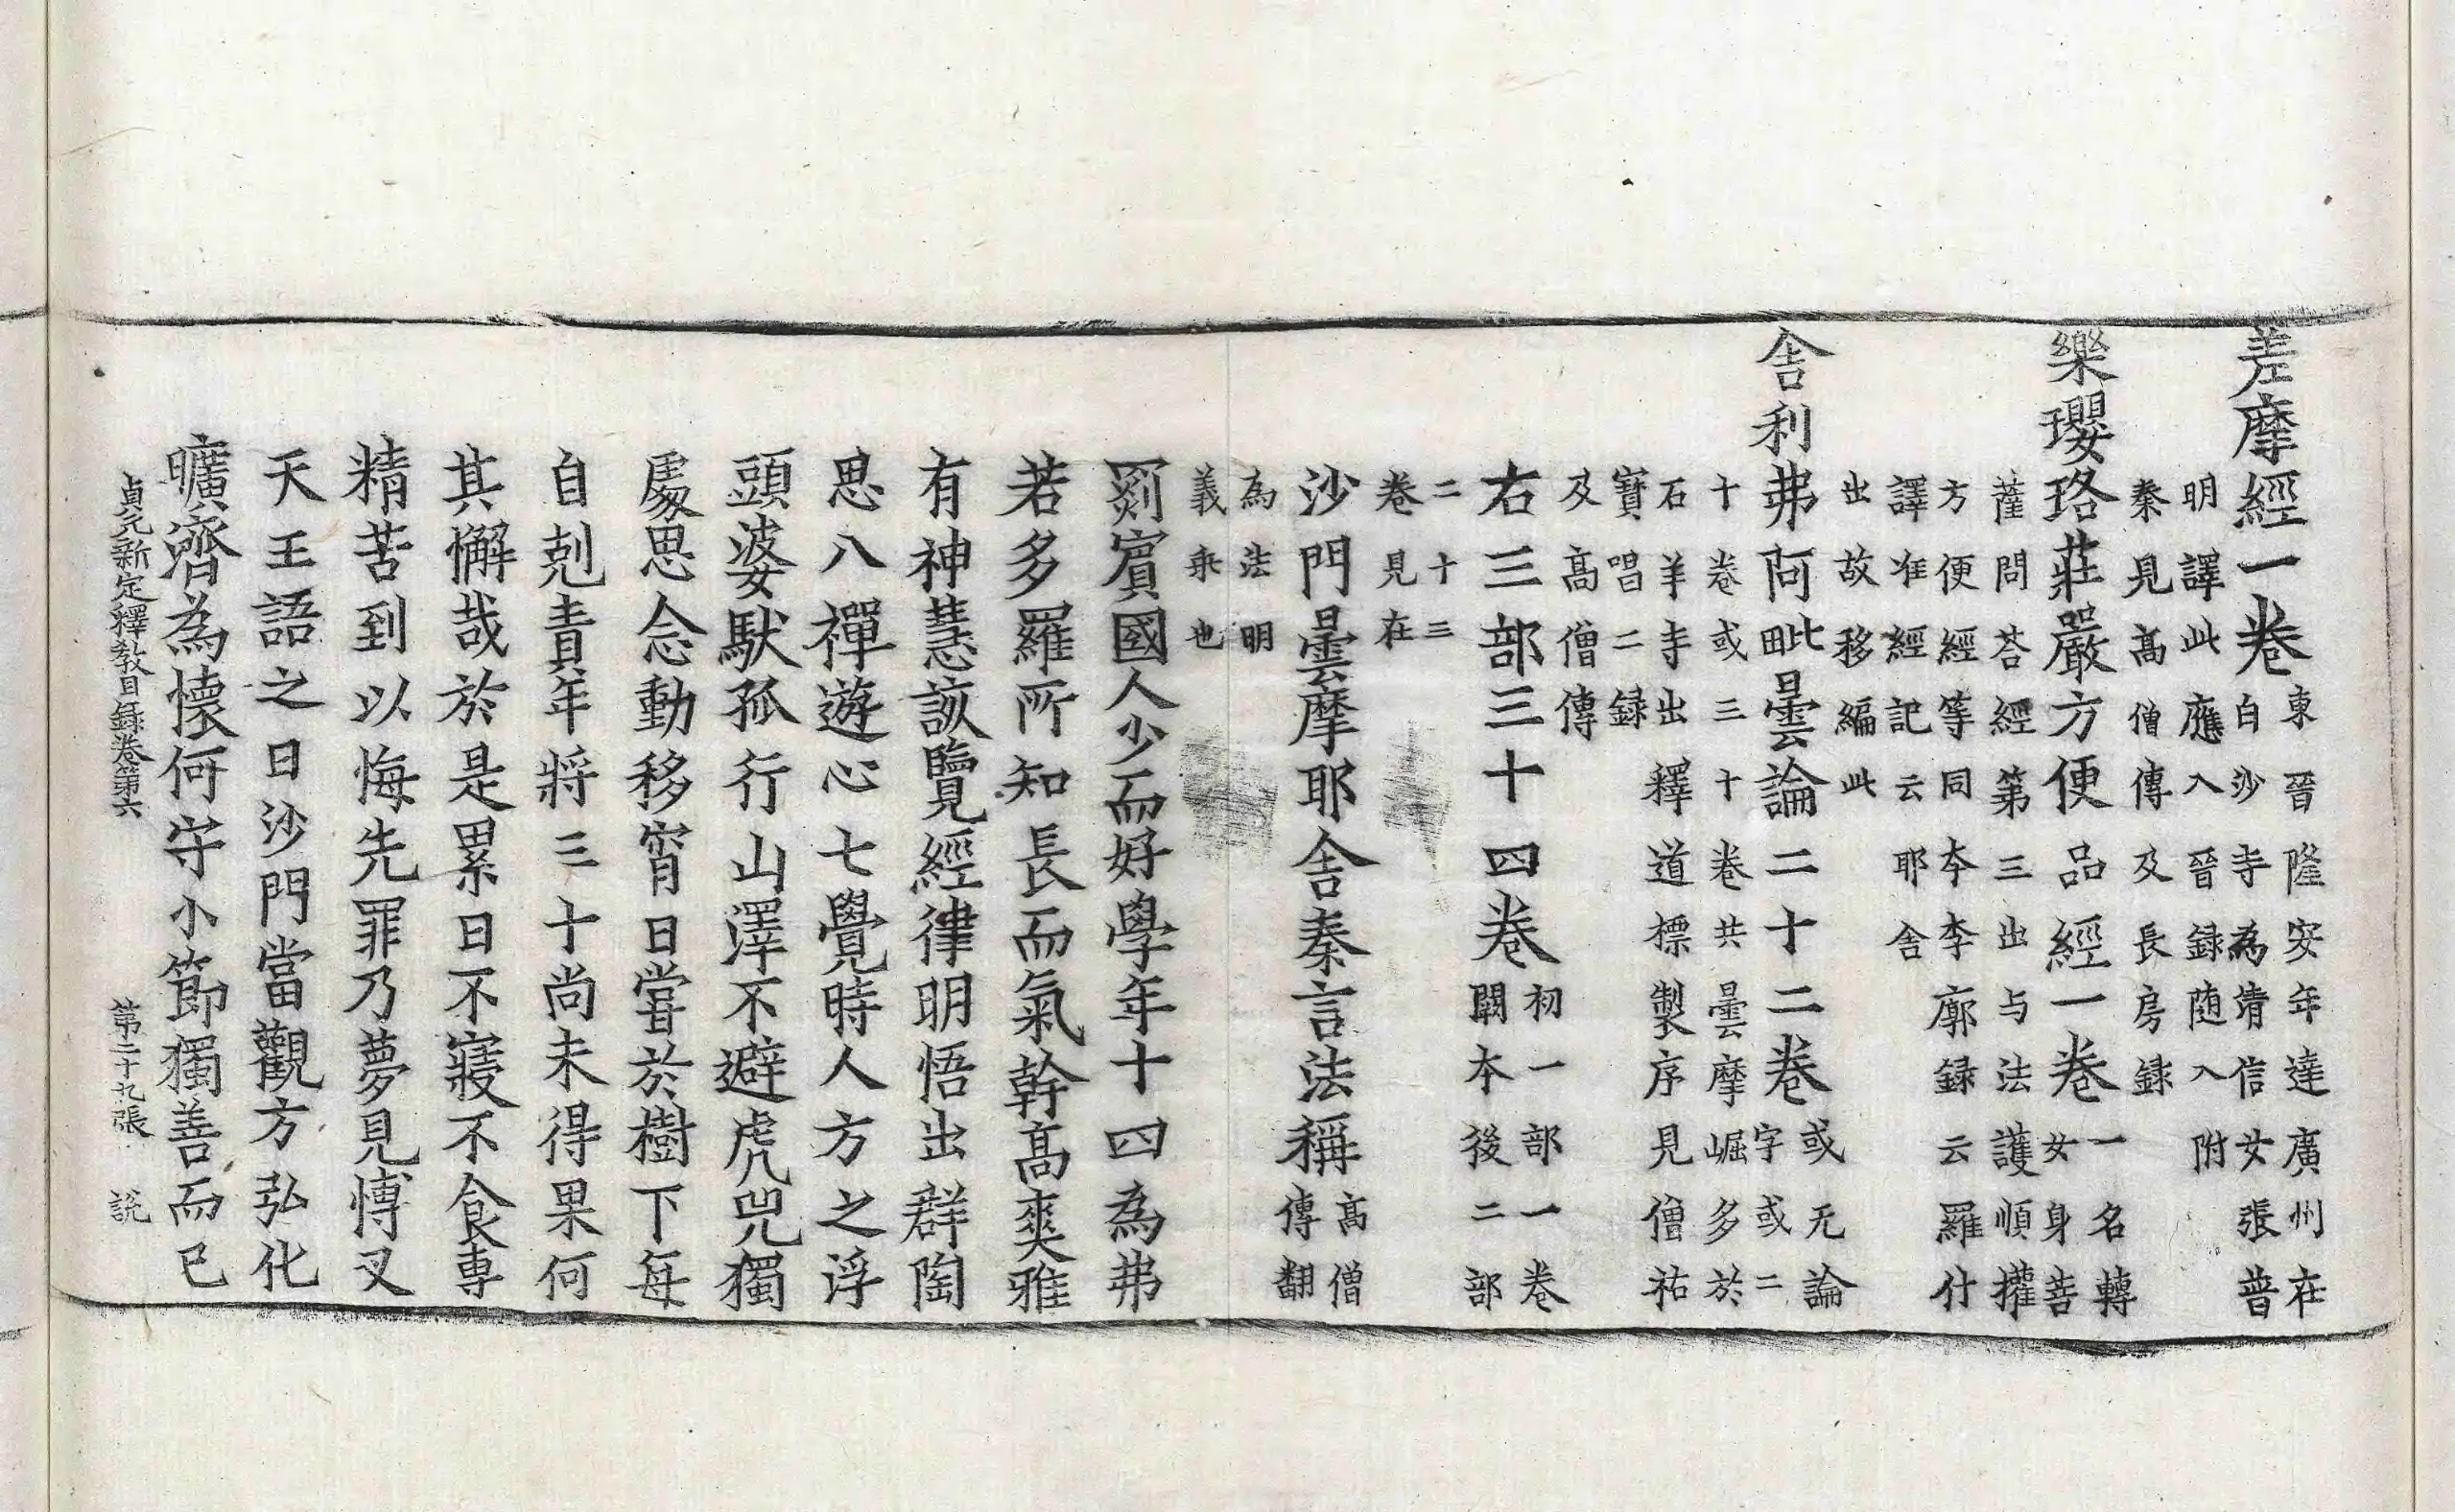 差摩經一卷 東晉隆安年達廣州在
白沙寺為清信女張普
明譯此應入晉録随入附
秦見髙僧傳及長房録
樂瓔珞莊嚴方便品經一卷 一名轉
女身菩
薩問荅經第三出与法護順權
方便經等同本李廓録云羅什
譯准經記云耶舍
出故移編此
舍利弗阿毗曇論二十二卷 或无論
字或二
十卷或三十卷共曇摩崛多於
石羊寺出釋道標製序見僧祐
寶唱二録
及髙僧傳
右三部三十四卷 初一部一卷
闕本後二部
二十三
卷見在
沙門曇摩耶舍秦言法稱 髙僧
傳翻
為法明
義乖也
罽賓國人少而好學年十四為弗
若多羅所知長而氣幹髙爽雅
有神慧該覽經律明悟出群陶
思八禪遊心七覺時人方之浮
頭婆馱孤行山澤不避虎兕獨
處思念動移宵日甞於樹下每
自剋責年將三十尚未得果何
其懈哉於是累日不寢不食専
精苦到以悔先罪乃夢見愽叉
天王語之曰沙門當觀方弘化
曠濟為懐何守小節獨善而已
貞元新定釋教目録卷第六 第二十九張 説